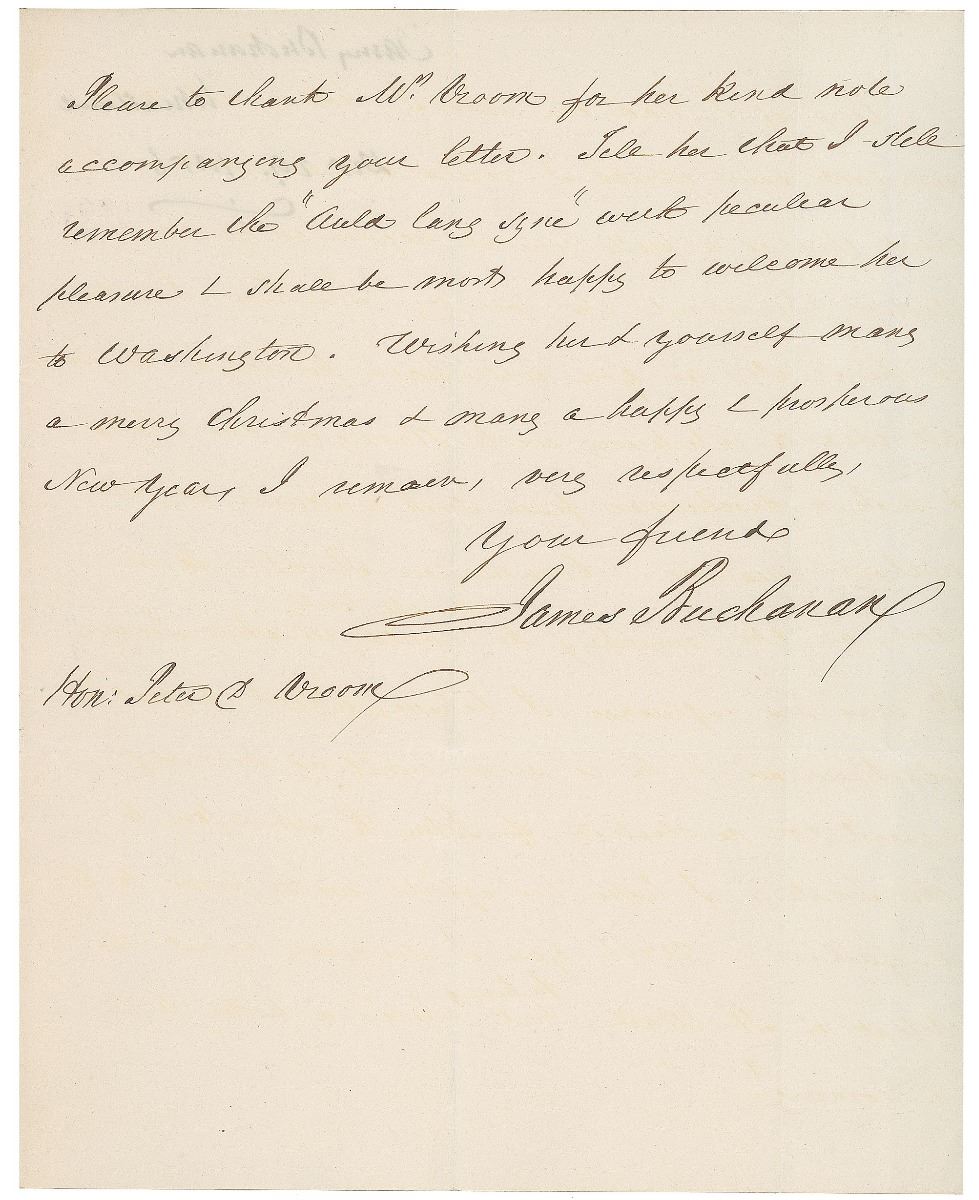 Please to thank Mrs Vroom for her kind note
accompanying your letter. Tell her that I still
remember the "Auld lang syne" with peculiar
pleasure & shall be most happy to welcome her
to Washington. Wishing her & yourself many
a merry Christmas & many a happy & prosperous
New Year, I remain, very respectfully,
Your friend
James Buchanan
Hon: Peter D Vroom